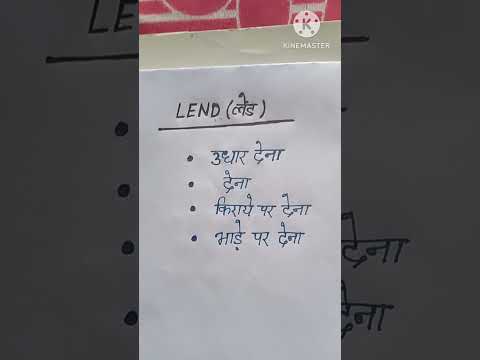 KINEMASTER
LEND (लेंड)
• उधार देना
• देना
• किराये पर देना
• भाड़े पर देना